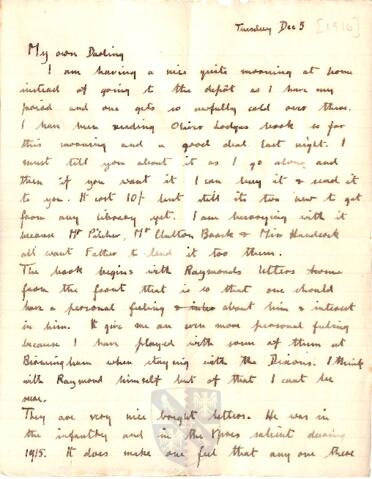 Tuesday Dec 5 [1916]
My own Darling
I am having a nice quite morning at home
instead of going to the depôt as I have my
period and one gets so awfully cold over there.
I have been reading Oliver Lodges book so far
this morning and a good deal last night. I
must tell you about it as I go along and
then if you want it I can buy it & send it
to you. It cost 10/- but still its two new to get
from any library yet. I am hurrying with it
because Mr Pilcher, Mr Clutton Brock & Miss
all want Father to lend it too them.
The book begins with Raymonds letters home
from the front that is so that one should
have a personal feeling about him & interest
in him. It give me an even more personal feeling
because I have played with some of them at
Birmingham when staying with the Dixons. I think
with Raymond himself but of that I cant be
sure.
They are very nice bright letters. He was in
the infantry and in the Ypres salient during
1915. It does make one feel that any one there